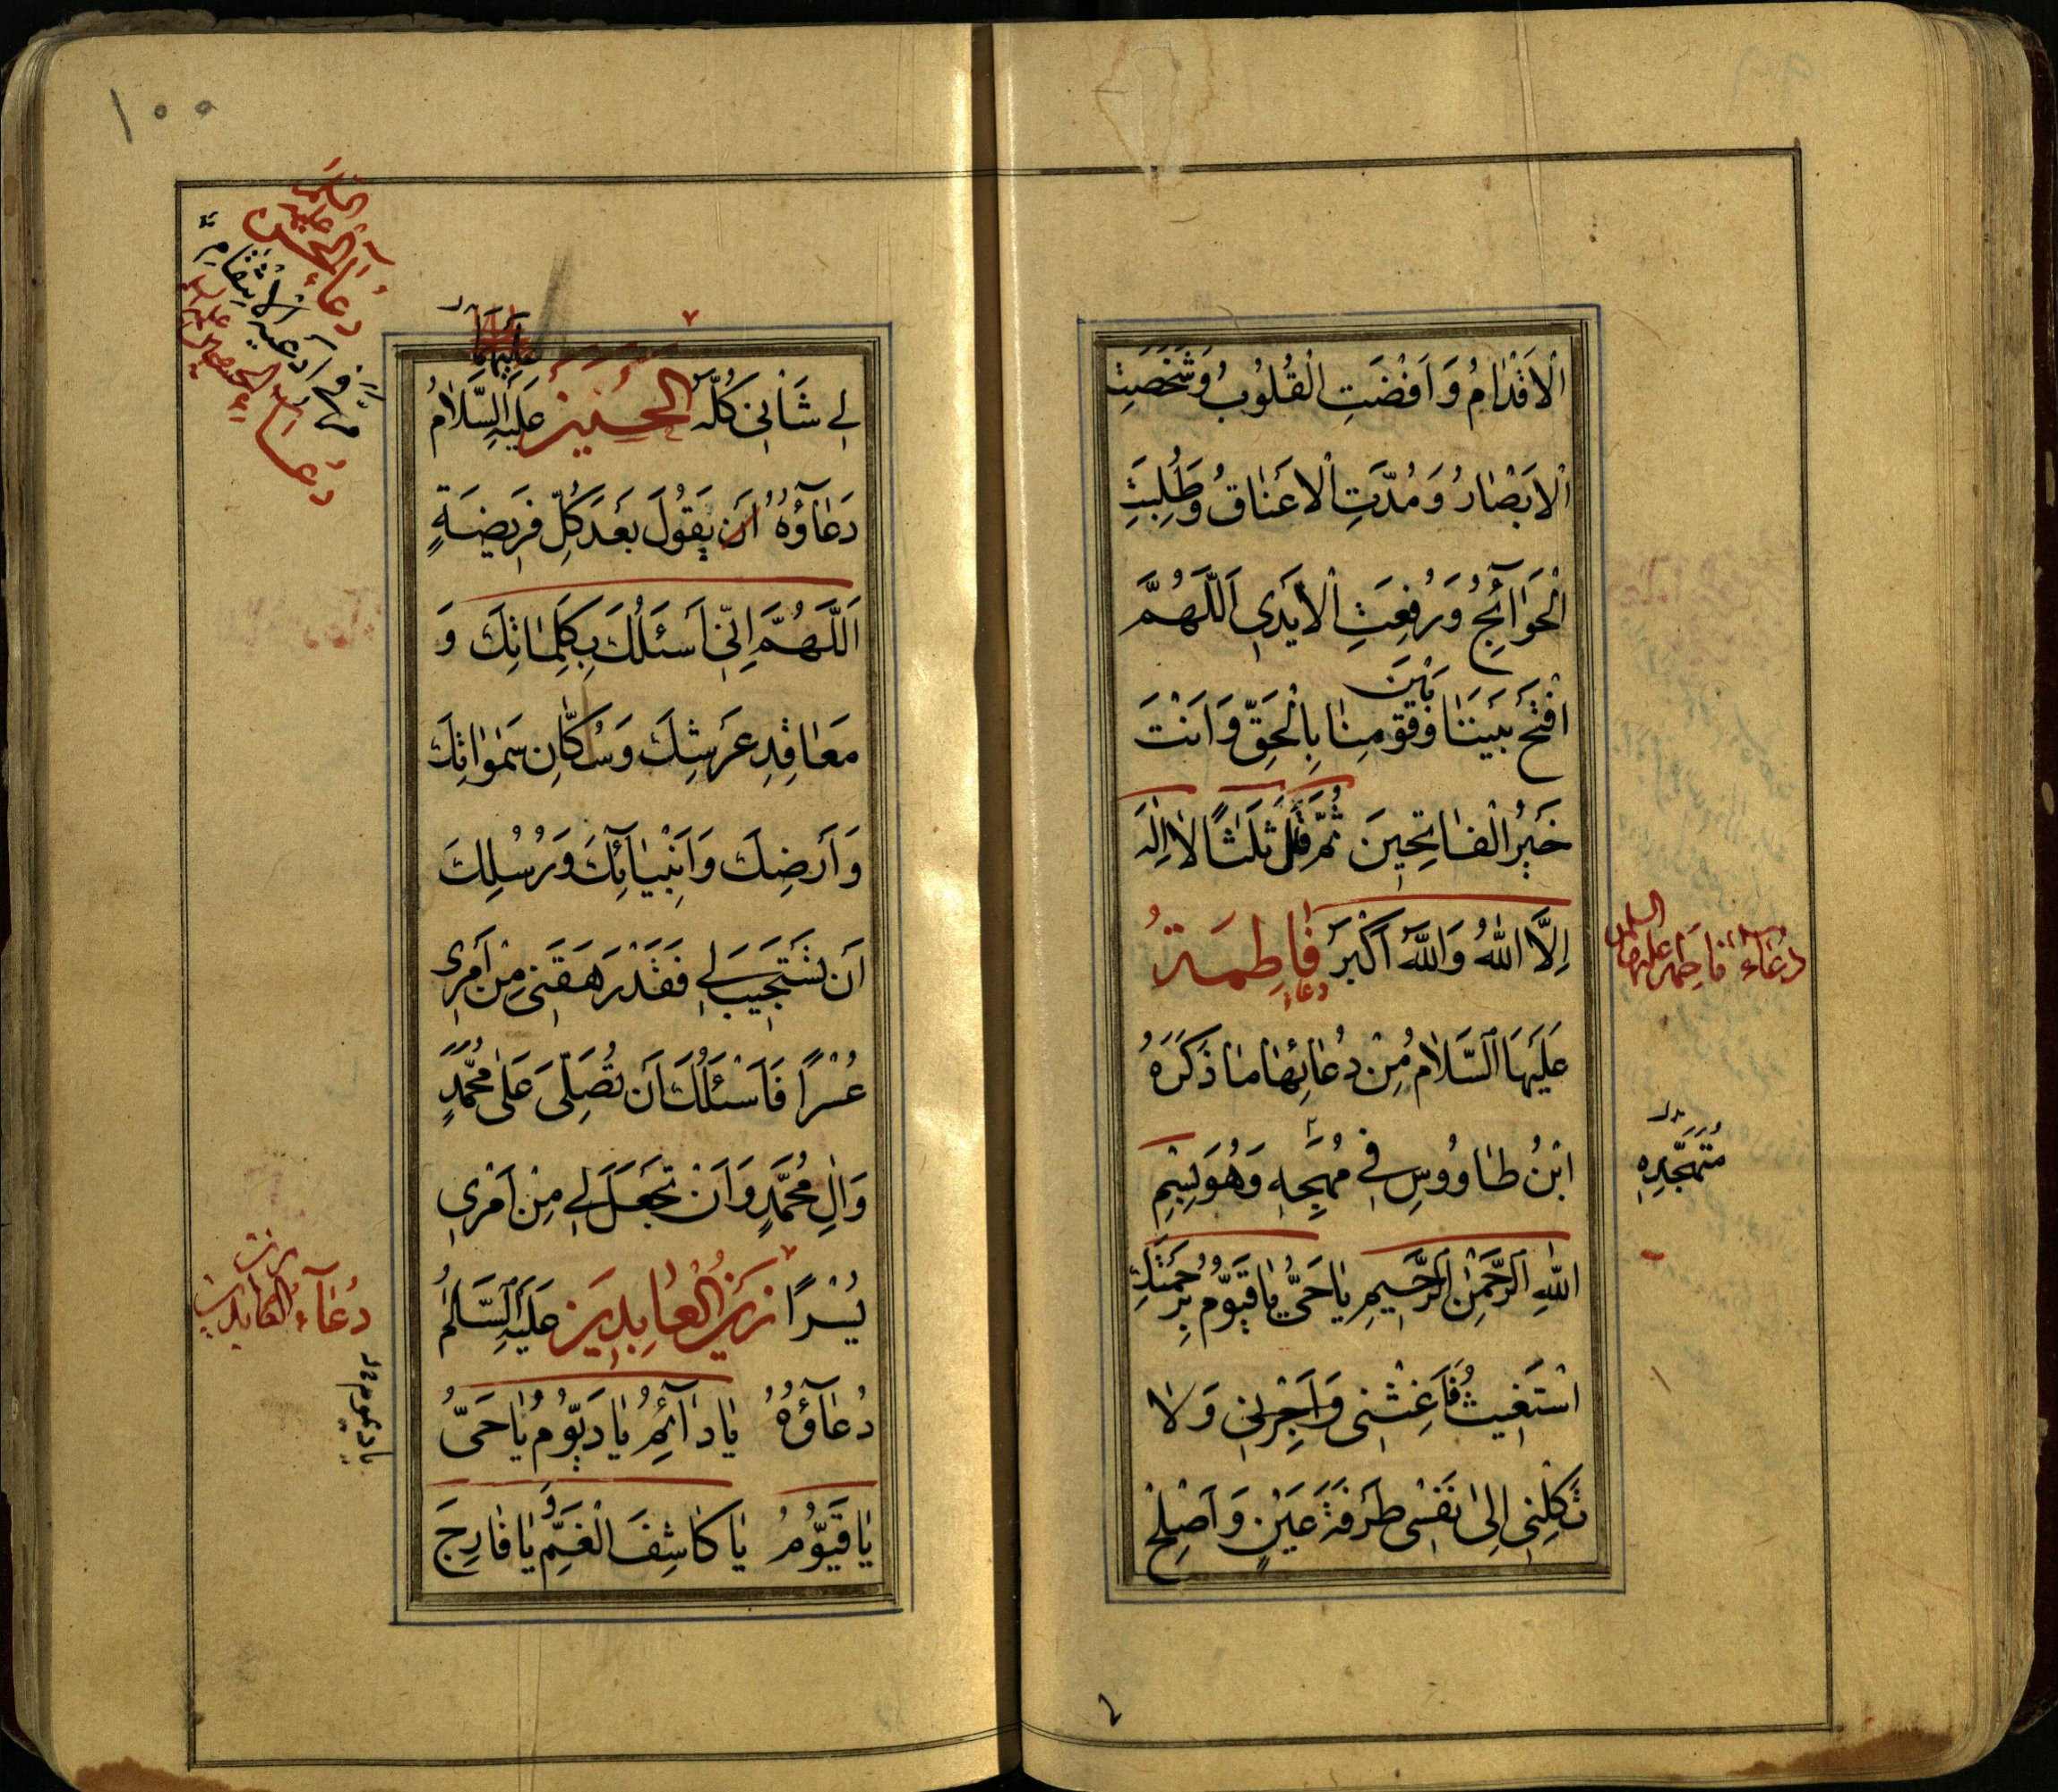 الْاَقْدٰامُ وَ اَفْضَتِ الْقُلُوبُ وَشَخَصَتِ
الْاَبْصٰارُ وَ مُدَّتِ الْاَعْنٰاقُ وَطُلِبَتِ
الْحَوٰائِجُ وَ رُفِعَتِ الْاَيْدِي اَللّٰهُمَّ
افْتَحْ بَيْنَنٰا وَ بَيْنَ قَوْمِنٰا بِالْحَقِّ وَ اَنْتَ
خَيْرُ الْفٰاتِحِينَ ثُمَّ قُلْ ثَلٰثًا لٰا اِلٰهَ
اِلَّا اللّٰهُ وَاللّٰهُ اَكْبَرُ فٰاطِمَةُ
دعاء
عَلَيْهَا السَّلٰامُ مِنْ دُعٰائِهٰا مٰا ذَكَرَهُ
ابْنُ طٰاوُوسٍ فِي مُهَجِهِ وَهُوَ بِسْمِ
اللّٰهِ الرَّحْمٰنِ الرَّحِيمِ يٰا حَيُّ يٰا قَيُّومُ بِرَحْمَتِكَ
اَسْتَغِيثُ فَاَغِثْنِي وَاَجِرْنِي وَ لٰا
تَكِلْنِي اِلىٰ نَفْسِي طَرْفَةَ عَيْنٍ وَ اَصْلِحْ
دُعٰاء فاطمه عليها السلام
١٠٠
لِي شَأْنِي كُلَّهُ الْحُسَيْنُ عَلَيْهِ السَّلٰامُ
عليهما
دُعٰاؤُهُ اَن يَقُولَ بَعْدَ كُلِّ فَرِيضَةٍ
اَللّٰهُمَّ اِنِّي اَسْئَلُكَ بِكَلِمٰاتِكَ وَ
مَعٰاقِدِ عَرْشِكَ وَ سُكّٰانِ سَمٰوٰاتِكَ
وَ اَرْضِكَ وَ اَنْبِيٰائِكَ وَ رُسُلِكَ
اَن تَسْتَجِيبَ لِي فَقَدْ رَهَقَنِي مِنْ اَمْرِي
عُسْرًا فَاَسْئَلُكَ اَن تُصَلِّيَ عَلىٰ مُحَمَّدٍ
وَ اٰلِ مُحَمَّدٍ وَ اَنْ تَجْعَلَ لِي مِنْ اَمْرِي
يُسْرًا زَيْنُ الْعٰابِدِينَ عَلَيْهِ السَّلٰمُ
دُعٰاؤُهُ يٰا دٰائِمُ يٰا دَيُّومُ يٰا حَيُّ
يٰا قَيُّومُ يٰا كٰاشِفَ الْغَمِّ وَ يٰا فٰارِجَ
دُعٰاء زين العابدين